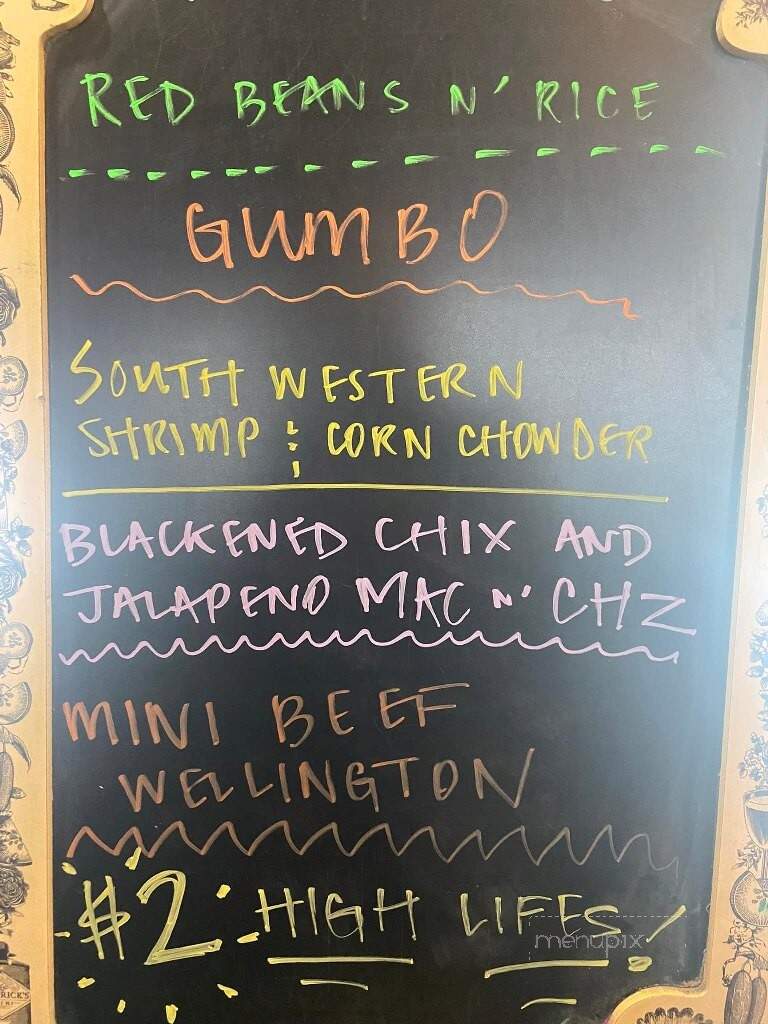 RED BEANS N' RICE
GUMBO
SOUTH WESTERN
SHRIMP & CORN CHOWDER
BLACKENED CHIX AND
JALAPENO MAC N' CHZ
MINI BEEF
WELLINGTON
$2 HIGH LIFES!
menupix
RICK'S